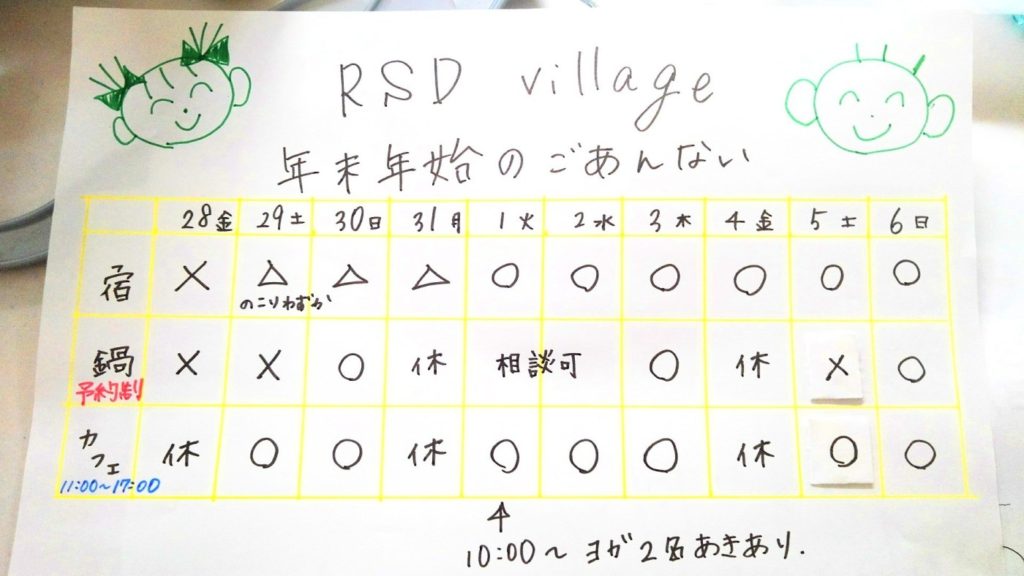 RSD village
年末年始のごあんない
28金 29土 30日 31月 1火 2水 3木 4金 5土 6日
宿 × △ △ △ ○ ○ ○ ○ ○ ○
のこりわずか
鍋 × × ○ 休 相談可 ○ 休 × ○
予約制
カフェ 休 ○ ○ 休 ○ ○ ○ 休 ○ ○
11:00~17:00
10:00~ ヨガ2名あきあり.